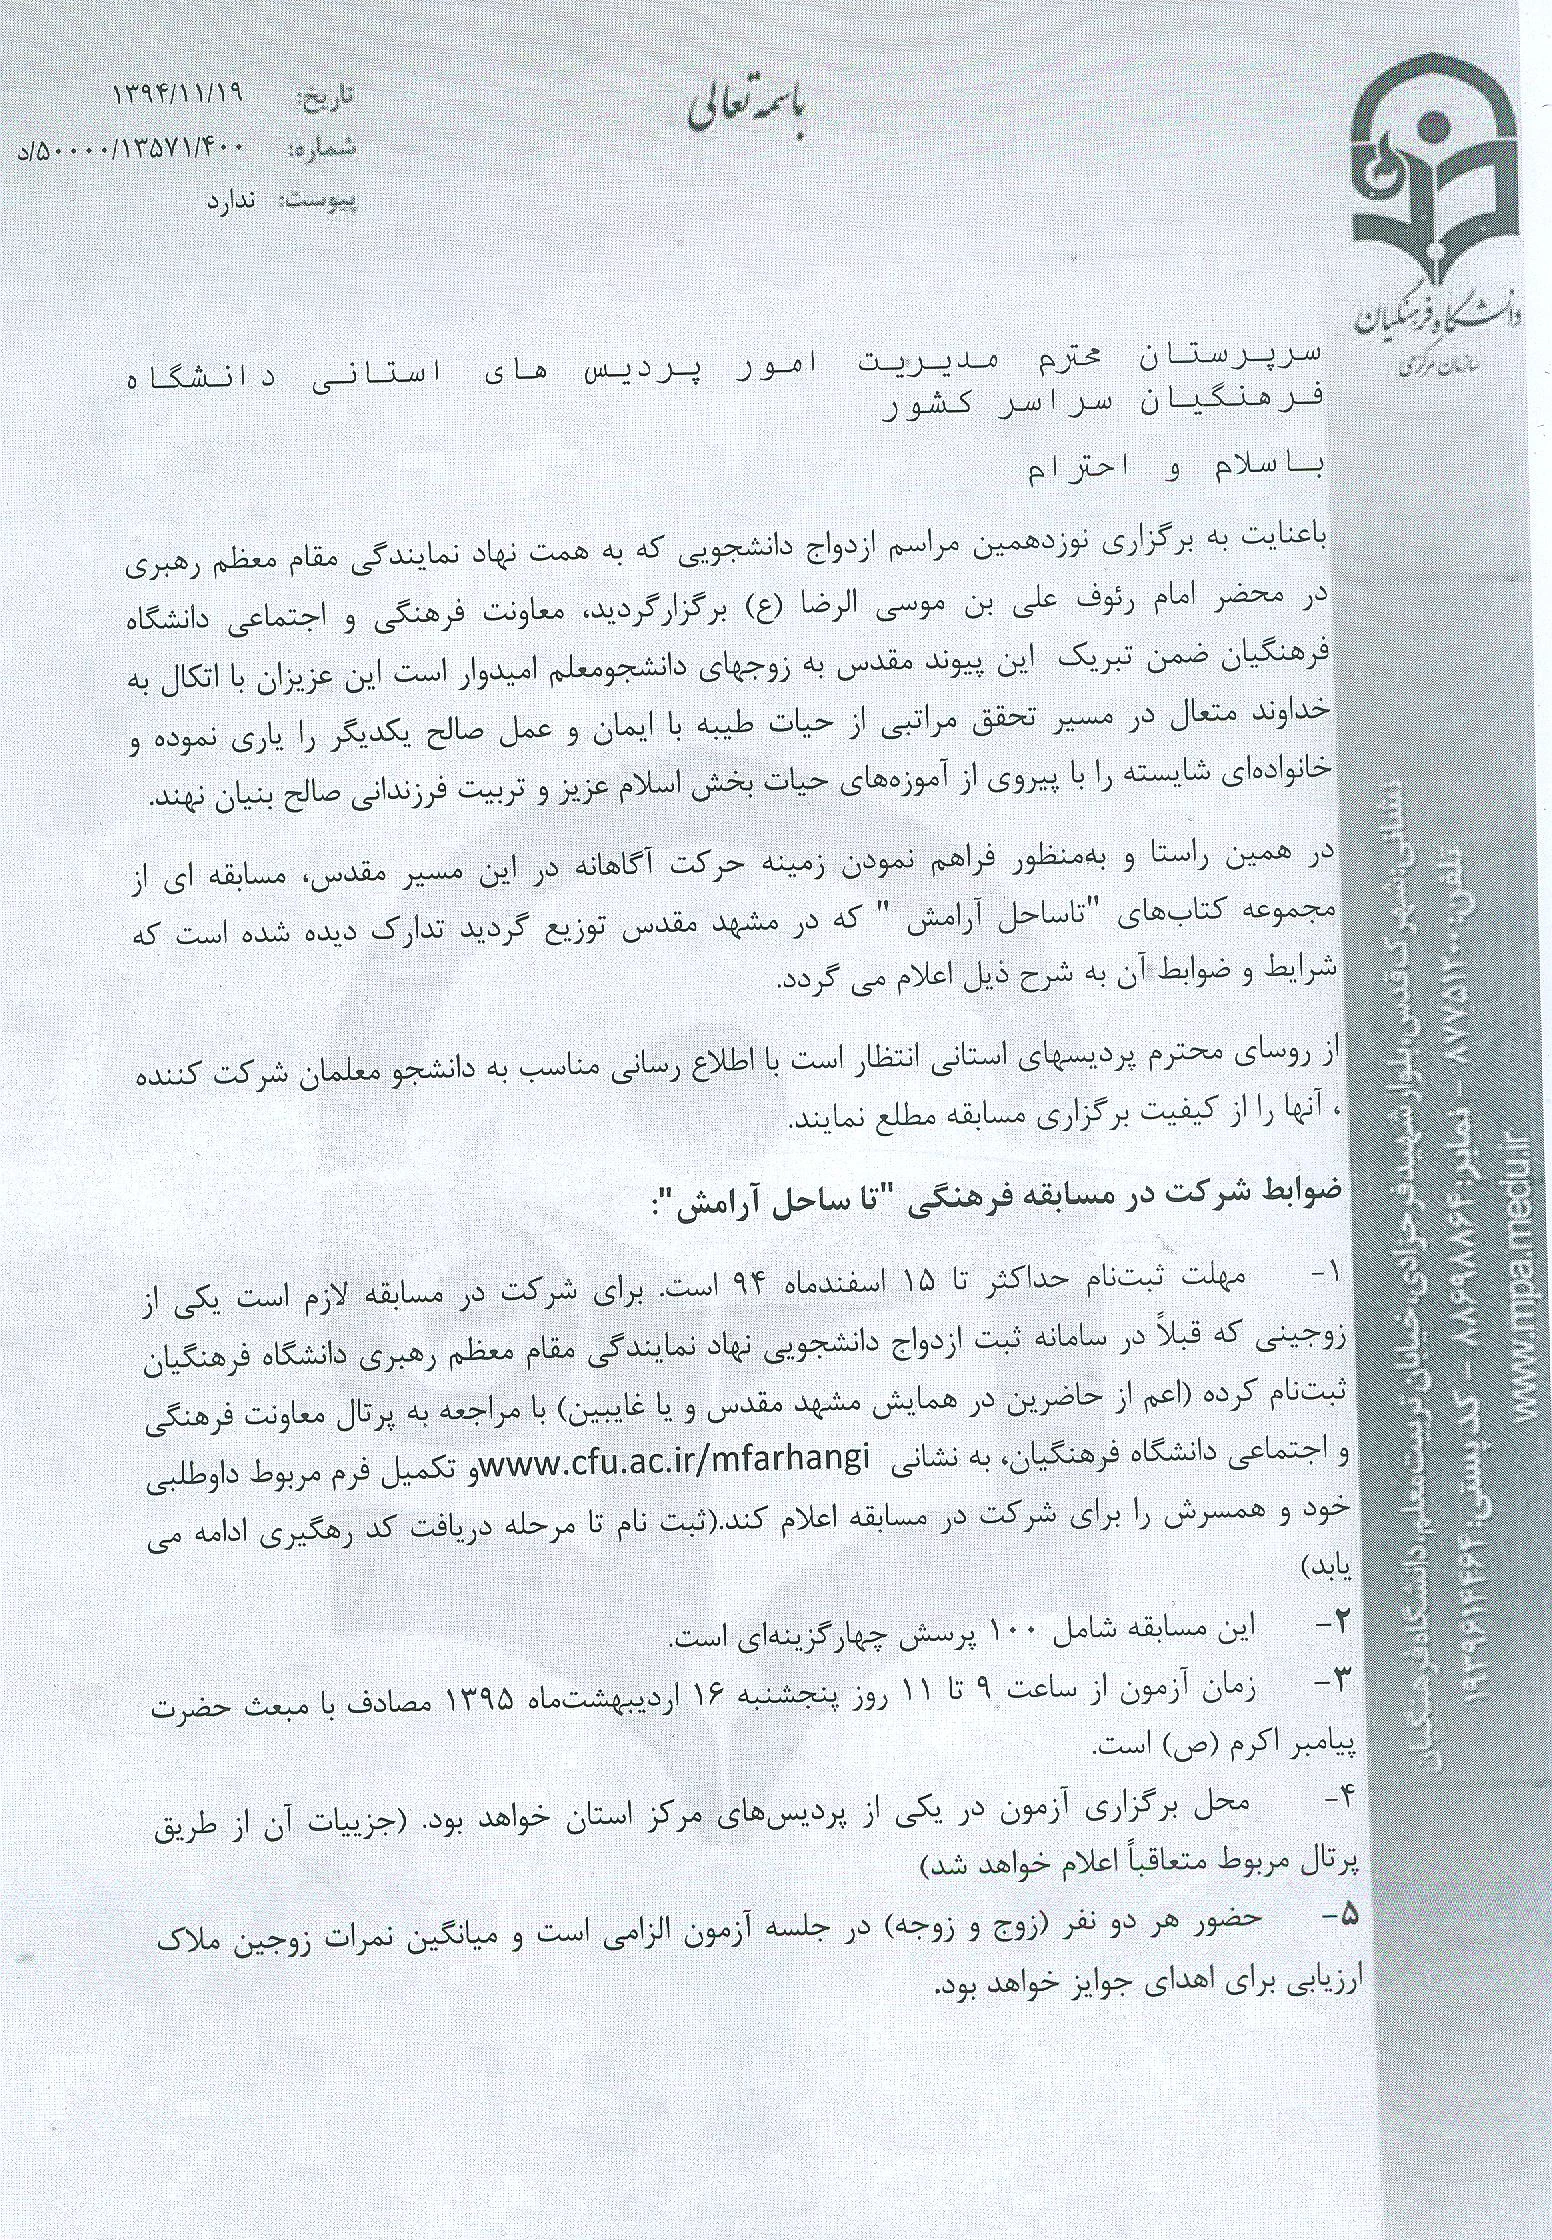 باسمه تعالی
تاریخ: ۱۳۹۴/۱۱/۱۹
شماره: ۵۰۰۰۰/۱۳۵۷۱/۴۰۰/د
پیوست: ندارد
دانشگاه فرهنگیان
سازمان مرکزی
سرپرستان محترم مدیریت امور پردیس های استانی دانشگاه
فرهنگیان سراسر کشور
باسلام و احترام
باعنایت به برگزاری نوزدهمین مراسم ازدواج دانشجویی که به همت نهاد نمایندگی مقام معظم رهبری
در محضر امام رئوف علی بن موسی الرضا (ع) برگزارگردید، معاونت فرهنگی و اجتماعی دانشگاه
فرهنگیان ضمن تبریک این پیوند مقدس به زوجهای دانشجومعلم امیدوار است این عزیزان با اتکال به
خداوند متعال در مسیر تحقق مراتبی از حیات طیبه با ایمان و عمل صالح یکدیگر را یاری نموده و
خانواده‌ای شایسته را با پیروی از آموزه‌های حیات بخش اسلام عزیز و تربیت فرزندانی صالح بنیان نهند.
در همین راستا و به‌منظور فراهم نمودن زمینه حرکت آگاهانه در این مسیر مقدس، مسابقه ای از
مجموعه کتاب‌های "تاساحل آرامش " که در مشهد مقدس توزیع گردید تدارک دیده شده است که
شرایط و ضوابط آن به شرح ذیل اعلام می گردد.
از روسای محترم پردیسهای استانی انتظار است با اطلاع رسانی مناسب به دانشجو معلمان شرکت کننده
، آنها را از کیفیت برگزاری مسابقه مطلع نمایند.
ضوابط شرکت در مسابقه فرهنگی "تا ساحل آرامش":
۱- مهلت ثبت‌نام حداکثر تا ۱۵ اسفندماه ۹۴ است. برای شرکت در مسابقه لازم است یکی از
زوجینی که قبلاً در سامانه ثبت ازدواج دانشجویی نهاد نمایندگی مقام معظم رهبری دانشگاه فرهنگیان
ثبت‌نام کرده (اعم از حاضرین در همایش مشهد مقدس و یا غایبین) با مراجعه به پرتال معاونت فرهنگی
و اجتماعی دانشگاه فرهنگیان، به نشانی www.cfu.ac.ir/mfarhangiو تکمیل فرم مربوط داوطلبی
خود و همسرش را برای شرکت در مسابقه اعلام کند.(ثبت نام تا مرحله دریافت کد رهگیری ادامه می
یابد)
۲- این مسابقه شامل ۱۰۰ پرسش چهارگزینه‌ای است.
۳- زمان آزمون از ساعت ۹ تا ۱۱ روز پنجشنبه ۱۶ اردیبهشت‌ماه ۱۳۹۵ مصادف با مبعث حضرت
پیامبر اکرم (ص) است.
۴- محل برگزاری آزمون در یکی از پردیس‌های مرکز استان خواهد بود. (جزییات آن از طریق
پرتال مربوط متعاقباً اعلام خواهد شد)
۵- حضور هر دو نفر (زوج و زوجه) در جلسه آزمون الزامی است و میانگین نمرات زوجین ملاک
ارزیابی برای اهدای جوایز خواهد بود.
تلفن: ۸۷۷۵۱۲۰۰ - نمابر: ۸۸۶۹۸۸۶۴ - کد پستی:
www.mpa.medu.ir